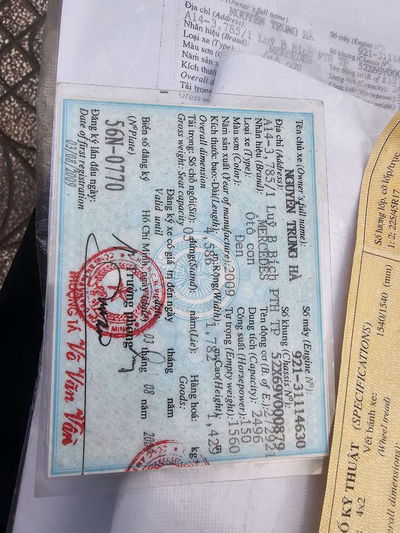 NGUYỄN TRUNG HÀ
Địa chỉ (Address):
A14-3,785/1 Luỹ B.Bích PTH TP
Nhãn hiệu (Brand):
Loại xe (Type):
Màu sơn
Năm sản
Kích thước
Tải trọng
Tên chủ xe (Owner's full name):
NGUYỄN TRUNG HÀ
Số máy (Engine Nº): 921-31114630
Địa chỉ (Address): Số khung (Chassis Nº): 52X69V000879
A14-3,785/1 Luỹ B.Bích PTH TP
Nhãn hiệu (Brand): MERCEDES Tên động cơ (B. of E.): 272921
Loại xe (Type): Ôtô con Dung tích (Capacity): 2496
Màu sơn (Color): Đen Công suất (Horsepower): 150
Năm sản xuất (Year of manufacture): 2009 Tự trọng (Empty weight): 1560
Kích thước bao: Dài(Length) 4,588 m; Rộng(Width) 1,782 m; Cao(Height) 1,429
Overall dimension
Tải trọng: Số chỗ ngồi(Sit): đứng(Stand) nằm(Lie) Hàng hoá: kg
Gross weight: Seat capacity Goods:
Đăng ký xe có giá trị đến ngày tháng năm
Valid until
Biển số đăng ký Hồ Chí Minh, ngày 03 tháng 08
(Nº Plate)
56N-0770 Trưởng phòng
Đăng ký lần đầu ngày:
Date of first registration
03/08/2009
Võ Văn Vân
Số lượng lốp, cỡ lốp/trục
1: 2; 225/45R17
KỸ THUẬT (SPECIFICATIONS)
4x2
Vết bánh xe: 1540/1540 (mm)
(Wheel tread)